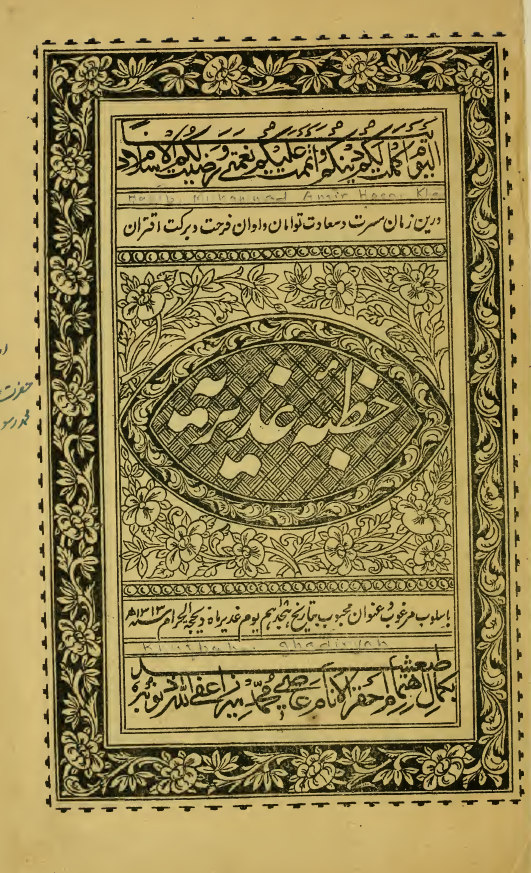 الیوم اکملت لکم دینکم و اتممت علیکم نعمتی و رضیت لکم الاسلام دینا
Muhammad Amir Hasan Kha
درین زمان مسرت و سعادت توامان و اوان فرحت و برکت اقتران
خطبۂ غدیریہ
باسلوب مرغوب و عنوان محبوب بتاریخ ہشتدہم یوم غدیر ماہ ذیحجہ الحرام سنہ ۱۳۱۳ھ
Khutbah-i ghadiriyah
بکمال اہتمام احقر الانام عاصی محمد عفی اللہ ذنوبہ
حضرت